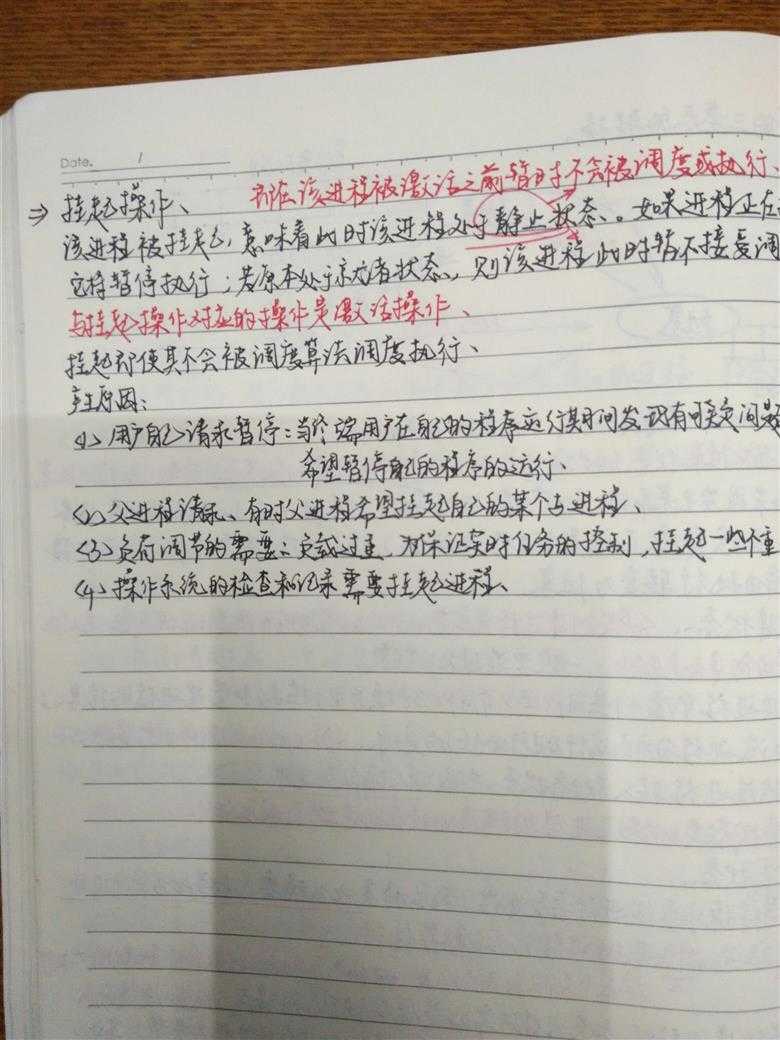 Date. /
即在该进程被激活之前暂时不会被调度或执行、
⇒ 挂起操作、
该进程被挂起，意味着此时该进程处于静止状态、。如果进程正在
它将暂停执行；若原本处于就绪状态、，则该进程此时暂不接受调
与挂起操作对应的操作是激活操作、
挂起即使其不会被调度算法调度执行、
主原因：
(1) 用户自己请求暂停：当终端用户在自己的程序运行期间发现有可疑问题
希望暂停自己的程序的运行、
(2) 父进程请求、有时父进程希望挂起自己的某个子进程、
(3) 负荷调节的需要：负载过重，为保证实时任务的控制，挂起一些不重
(4) 操作系统的检查和记录需要挂起进程、